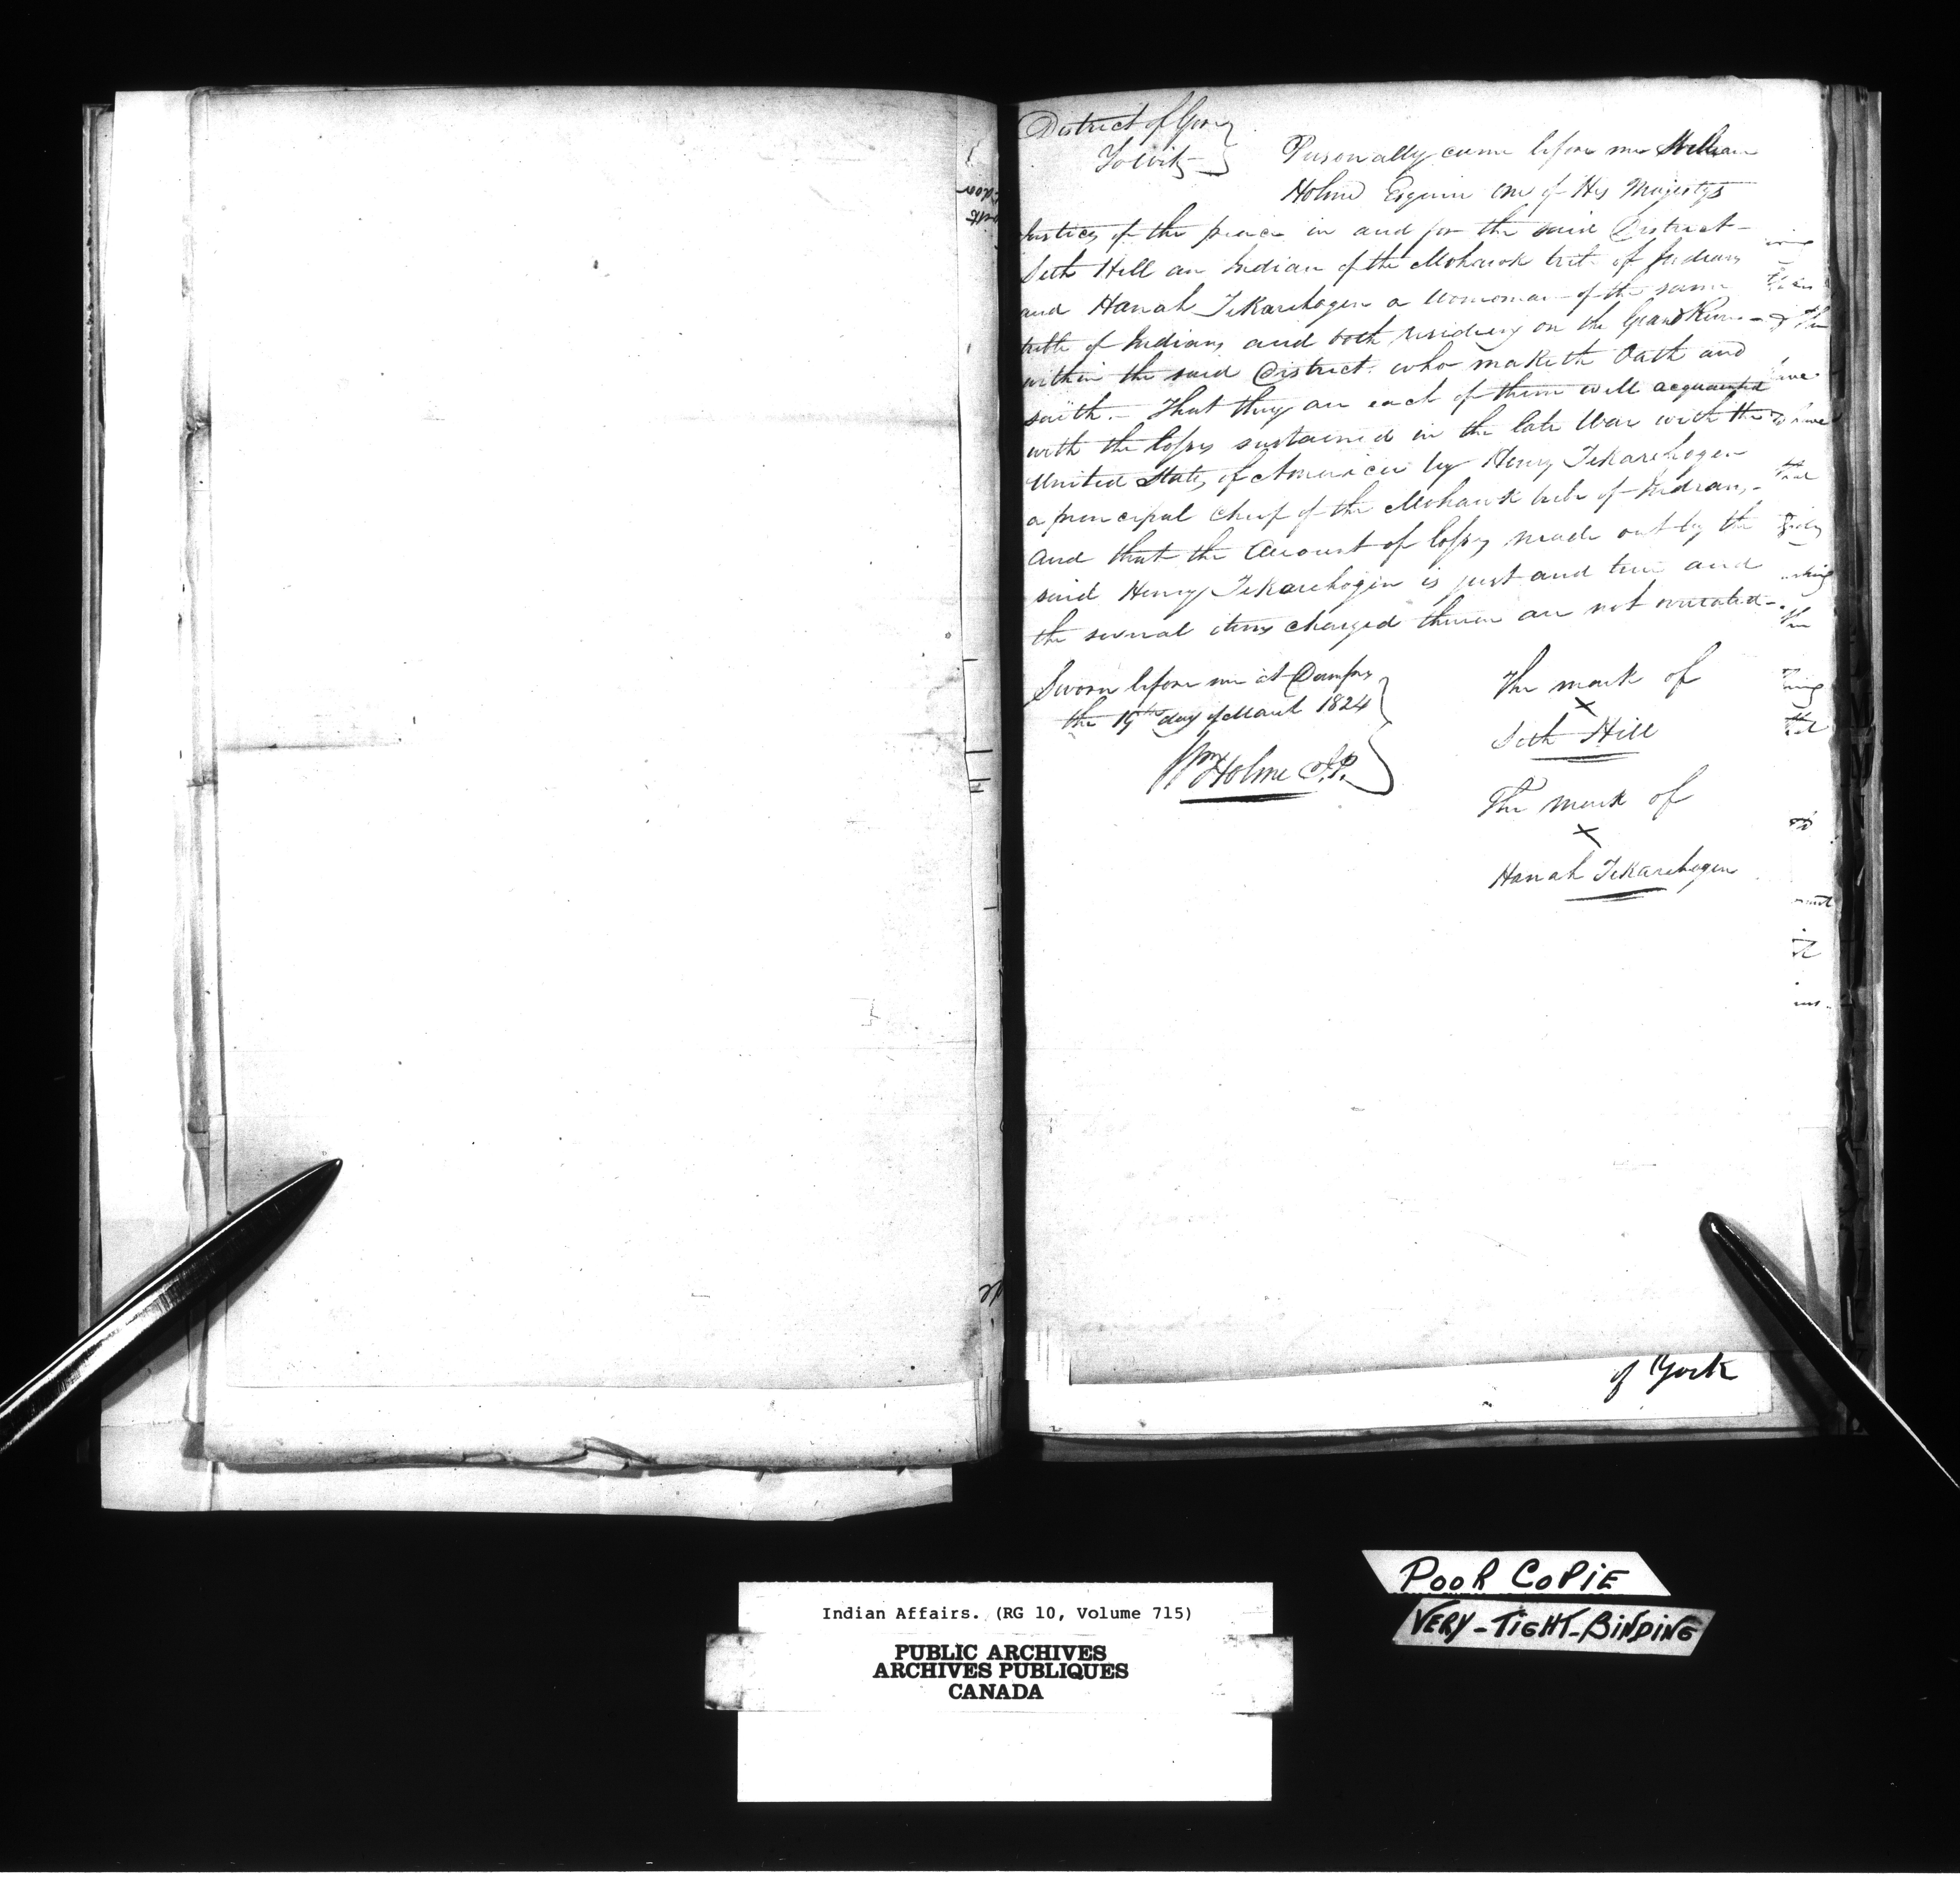 District of Gore
To Wit
Personally came before me William
Holme Esquire one of His Majestys
Justices of the peace in and for the said District
Seth Hill an Indian of the Mohawk tribe of Indians
and Hanah Tekarehogen a womoman of the same
tribe of Indians and both residing on the Grand River
within the said District who maketh Oath and
saith. That they are each of them well acquainted
with the losses sustained in the late War with the
United States of America by Henry Tekarehogen
a principal cheif of the Mohawk tribe of Indians,
and that the Account of losses made out by the
said Henry Tekarehogen is just and true and
the several items charged therein are not overrated
Sworn before me at Dumfries
the 19th day of March 1824
Wm Holme J.P.
The mark of
X
Seth Hill
The mark of
X
Hanah Tekarehogen
of York
POOR COPIE
VERY-TIGHT-BINDING
Indian Affairs. (RG 10, Volume 715)
PUBLIC ARCHIVES
ARCHIVES PUBLIQUES
CANADA